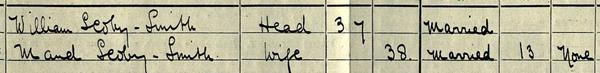 William Scoby-Smith Head 37 Married
Maud Scoby-Smith. Wife 38. Married 13 None